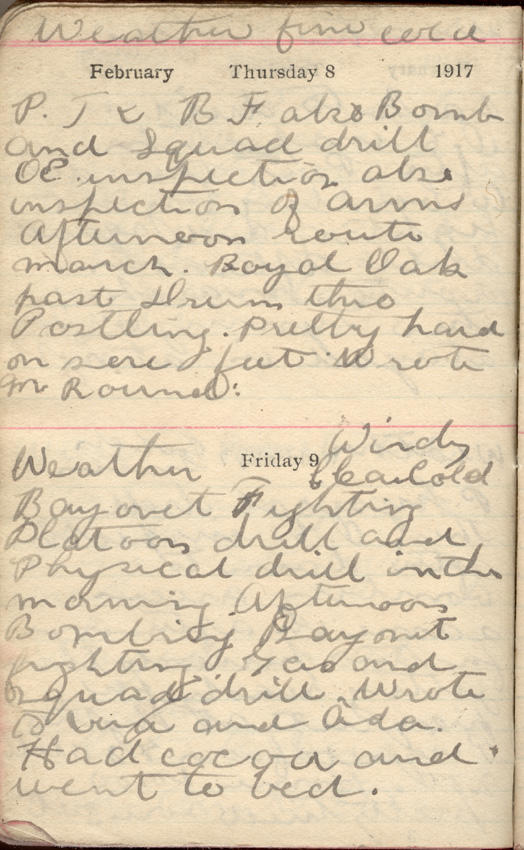 Weather fine cold
February Thursday 8 1917
P. T & B F. also Bomb
and Squad drill
OC. inspection also
inspection of arms
Afternoon route
march. Royal Oak
past Drum thro
Postling. Pretty hard
on sore feet. Wrote
Mr Round.
Weather Friday 9 Windy
Clear Cold
Bayonet Fighting
Platoon drill and
Physical drill in the
morning. Afternoon
Bombing Bayonet
fighting Gas and
squad drill. Wrote
to and Ada.
Had cocoa and
went to bed.